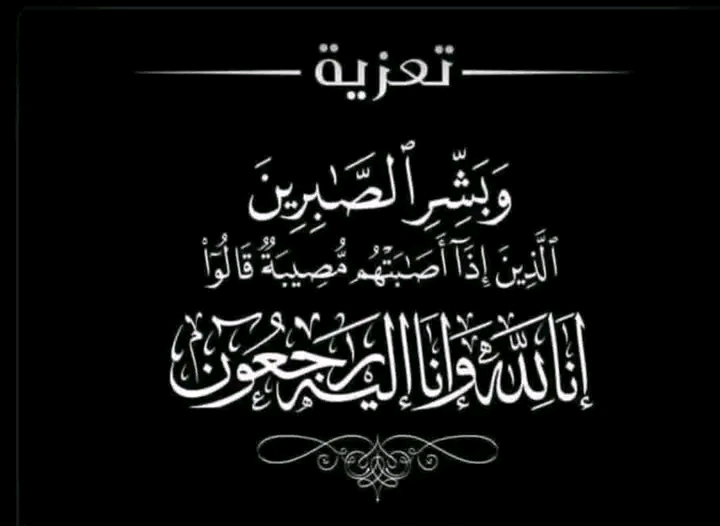 تعزية
وَبَشِّرِ ٱلصَّـٰبِرِينَ
ٱلَّذِينَ إِذَآ أَصَـٰبَتْهُم مُّصِيبَةٌ قَالُوٓا۟
إنا لله وإنا إليه راجعون